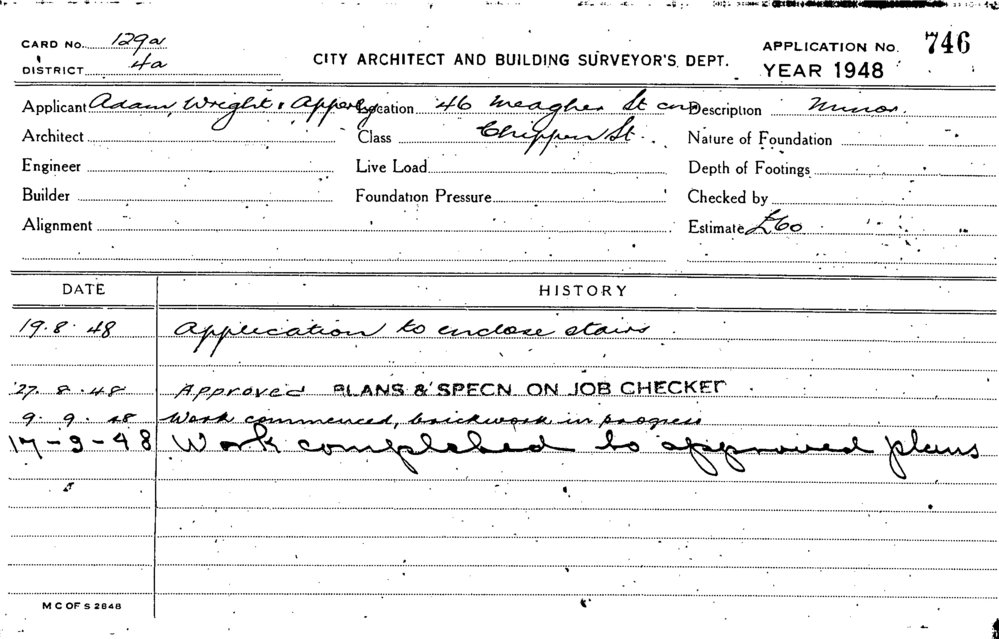 CARD No. 129a
DISTRICT 4a
CITY ARCHITECT AND BUILDING SURVEYOR'S DEPT.
APPLICATION No. 746
YEAR 1948
Applicant Adam, Wright & Apperly Location 46 Meagher St cnr Description Minor.
Architect Class Chippen St. Nature of Foundation
Engineer Live Load Depth of Footings
Builder Foundation Pressure Checked by
Alignment Estimate £60
DATE HISTORY
19.8.48 Application to enclose stairs
27.8.48 Approved PLANS & SPECN. ON JOB CHECKED
9.9.48 Work commenced, brickwork in progress
17-9-48 Work completed to approved plans
M C OF S 2848